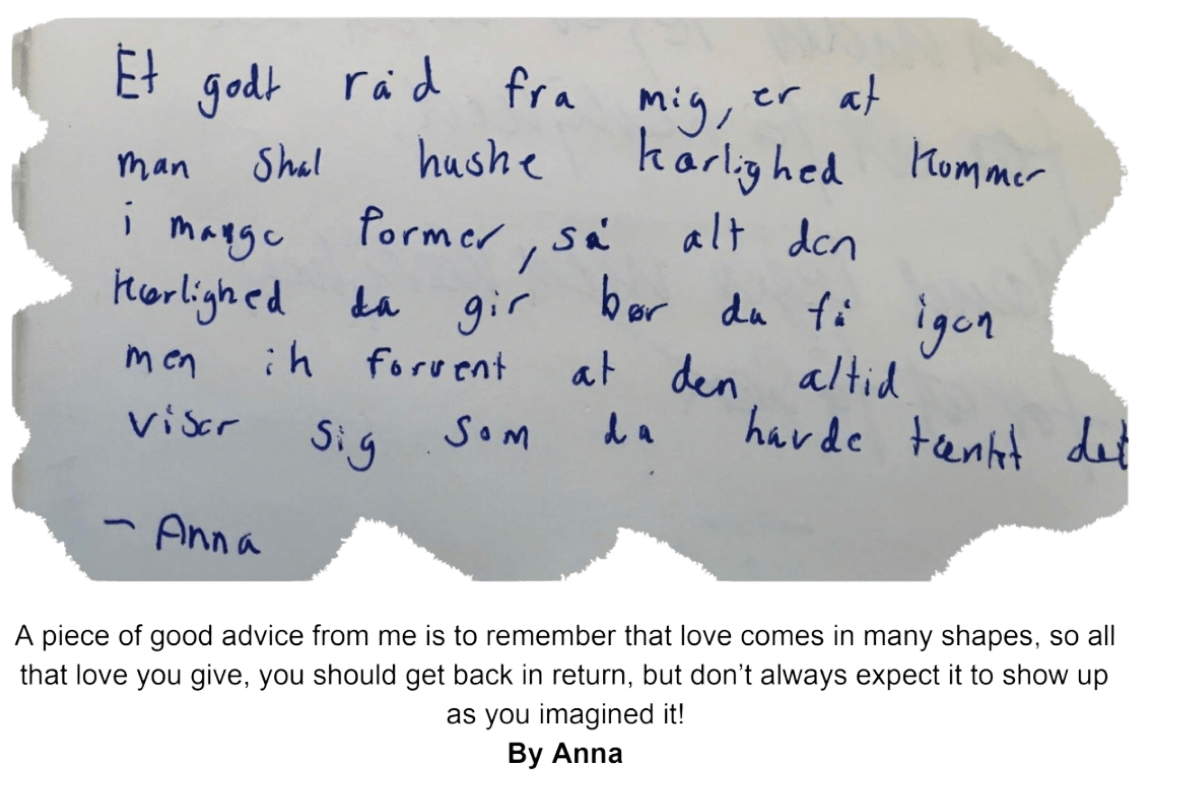 Et godt råd fra mig, er at
man skal huske karlighed kommer
i mange former, så alt den
kærlighed du gir bør du få igen
men ik forvent at den altid
viser sig som du havde tænkt det
- Anna
A piece of good advice from me is to remember that love comes in many shapes, so all
that love you give, you should get back in return, but don’t always expect it to show up
as you imagined it!
By Anna